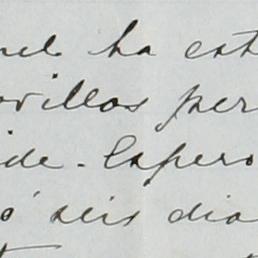 nel ha est
ovillas per
ide. Espero
o' seis dia